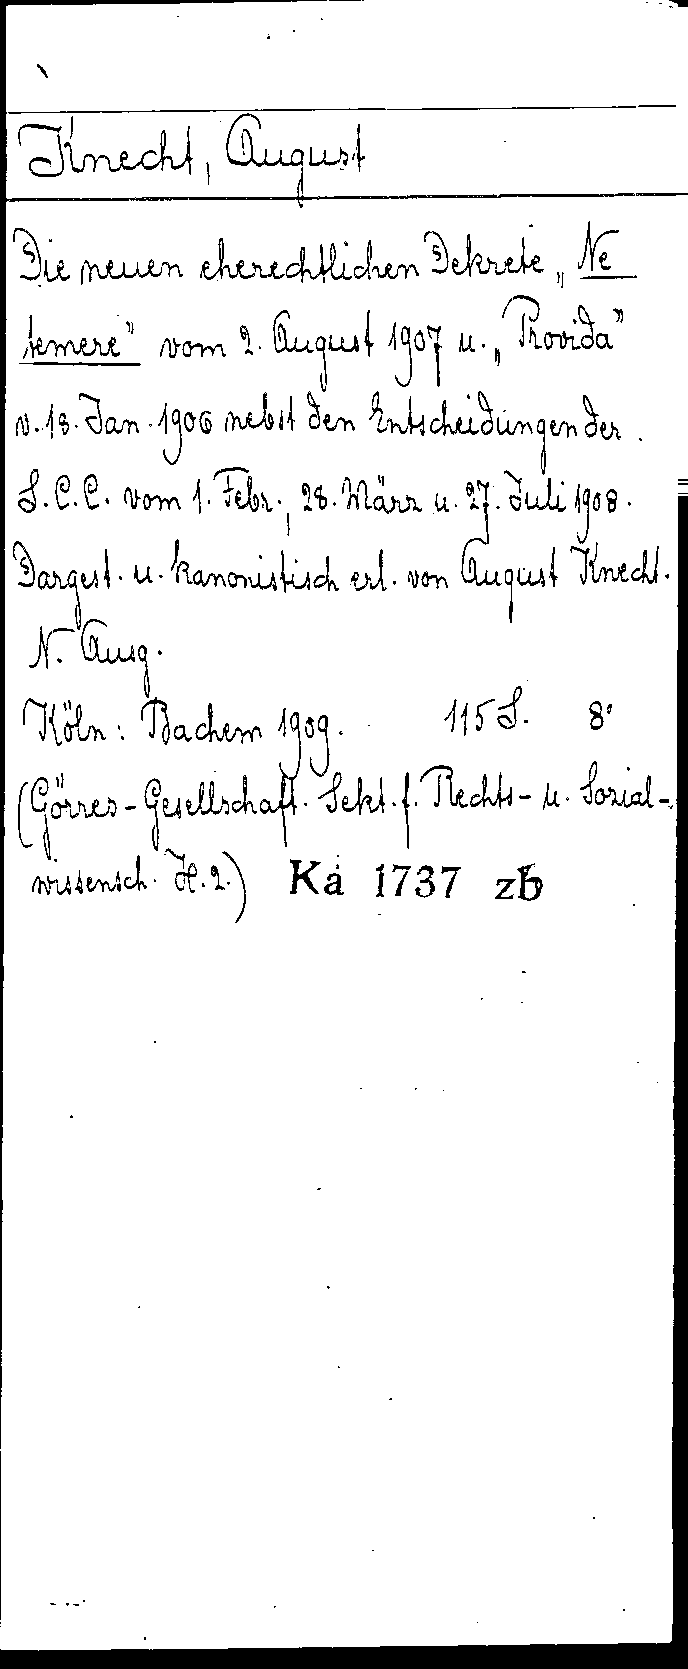 Knecht, August
Die neuen eherechtlichen Dekrete „Ne
temere" vom 2. August 1907 u. „Provida"
v. 18. Jan. 1906 nebst den Entscheidungen der
S. C. C. vom 1. Febr., 28. März u. 27. Juli 1908.
Dargest. u. kanonistisch erl. von August Knecht.
N. Ausg.
Köln: Bachem 1909. 115 S. 8°
(Görres-Gesellschaft. Sekt. f. Rechts- u. Sozial-
wissensch. H. 2.) Ka 1737 zb